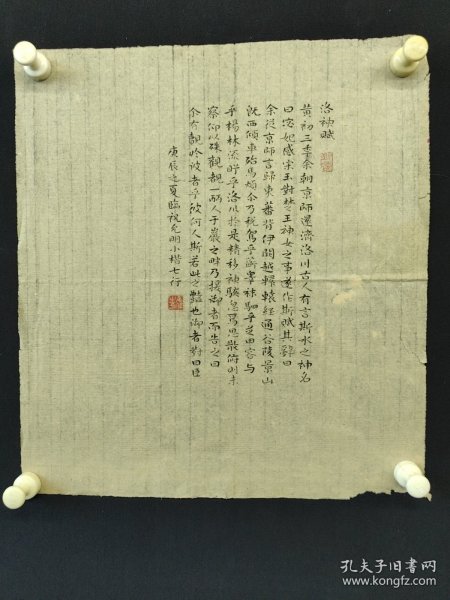 洛神賦
黃初三年余朝京師還濟洛川古人有言斯水之神名
曰宓妃感宋玉對楚王神女之事遂作斯賦其辭曰
余從京師言歸東蕃背伊闕越轘轅經通谷陵景山
既西傾車殆馬煩尒乃稅駕乎蘅皋秣駟乎芝田容與
乎楊林流眄乎洛川於是精移神駭忽焉思散俯則未
察仰以殊觀覩一麗人于巖之畔乃援御者而告之曰
尒有覿於彼者乎彼何人斯若此之豔也御者對曰臣
庚辰之夏臨祝允明小楷七行
孔夫子旧书网
www.kongfz.com